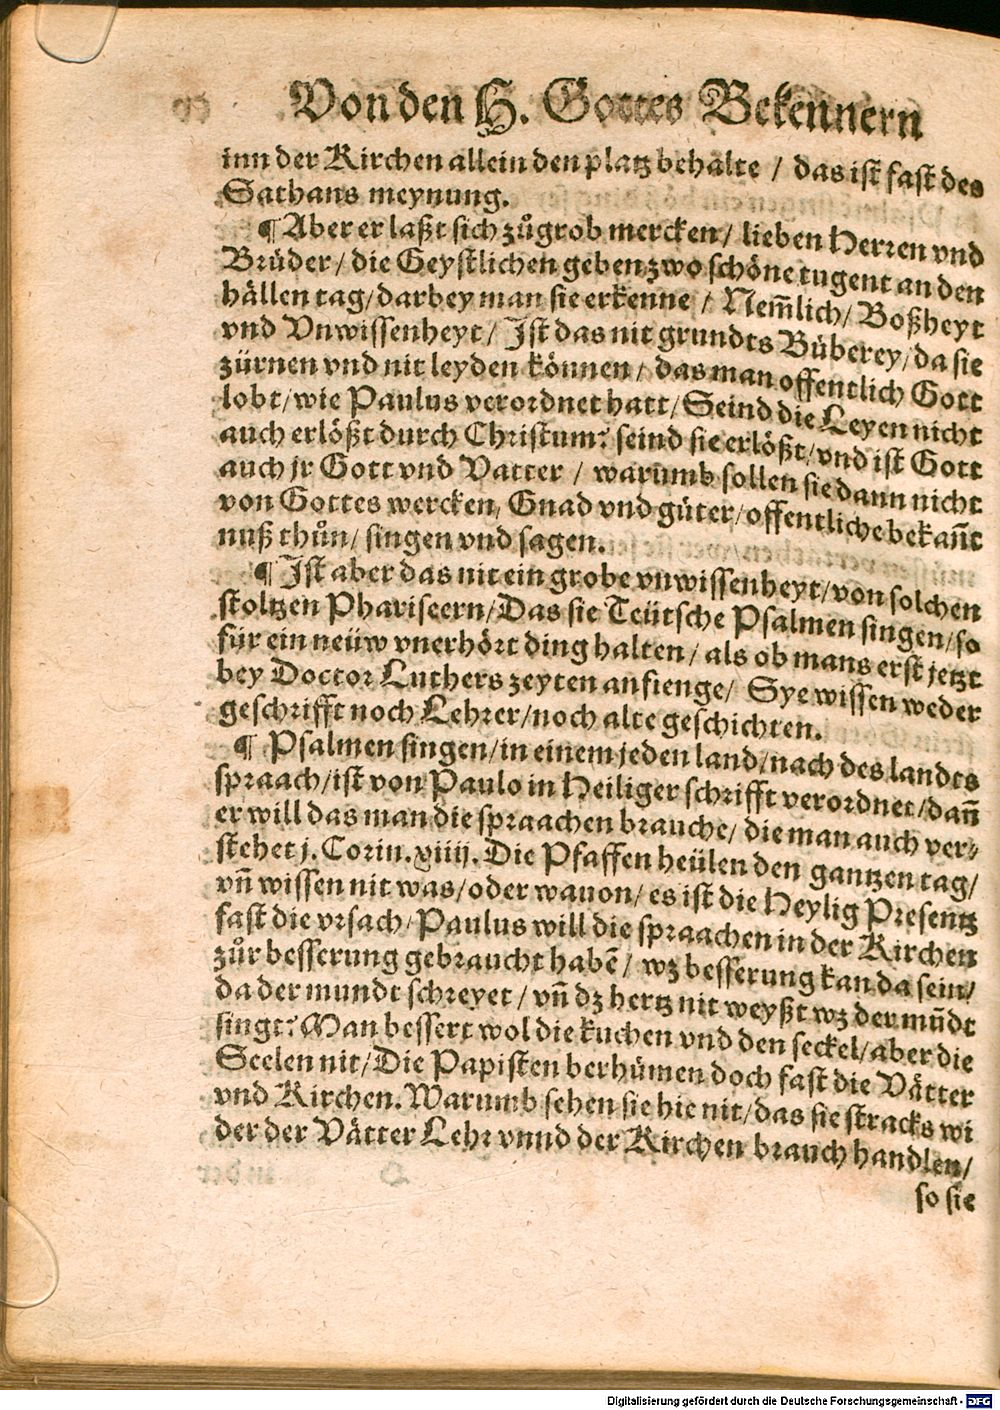 Von den H. Gottes Bekennern
inn der Kirchen allein den platz behalte / das ist fast des
Sathans meynung.
¶ Aber er laßt sich zůgrob mercken / lieben Herren vnd
Brüder / die Geystlichen geben zwo schöne tugent an den
hällen tag / darbey man sie erkenne / Nem̃lich / Boßheyt
vnd Vnwissenheyt / Ist das nit grundts Büberey / da sie
zürnen vnd nit leyden können / das man offentlich Gott
lobt / wie Paulus verordnet hatt / Seind die Leyen nicht
auch erlößt durch Christum? seind sie erlößt / vnd ist Gott
auch jr Gott vnd Vatter / warumb sollen sie dann nicht
von Gottes wercken, Gnad vnd güter / offentliche bekañt
nuß thůn / singen vnd sagen.
¶ Ist aber das nit ein grobe vnwissenheyt / von solchen
stoltzen Phariseern / Das sie Teütsche Psalmen singen / so
für ein neüw vnerhört ding halten / als ob mans erst jetzt
bey Doctor Luthers zeyten anfienge / Sye wissen weder
geschrifft noch Lehrer / noch alte geschichten.
¶ Psalmen singen / in einem jeden land / nach des landts
spraach / ist von Paulo in Heiliger schrifft verordnet / dañ
er will das man die spraachen brauche / die man auch ver⸗
stehet j. Corin. xiiij. Die Pfaffen heülen den gantzen tag /
vñ wissen nit was / oder wauon / es ist die Heylig Presentz
fast die vrsach / Paulus will die spraachen in der Kirchen
zůr besserung gebraucht habẽ / wz besserung kan da sein /
da der mundt schreyet / vñ dz hertz nit weyßt wz der mũdt
singt? Man bessert wol die kuchen vnd den seckel / aber die
Seelen nit / Die Papisten berhümen doch fast die Vätter
vnd Kirchen. Warumb sehen sie hie nit / das sie stracks wi
der der Vätter Lehr vnnd der Kirchen brauch handlen /
so sie
Digitalisierung gefördert durch die Deutsche Forschungsgemeinschaft - DFG